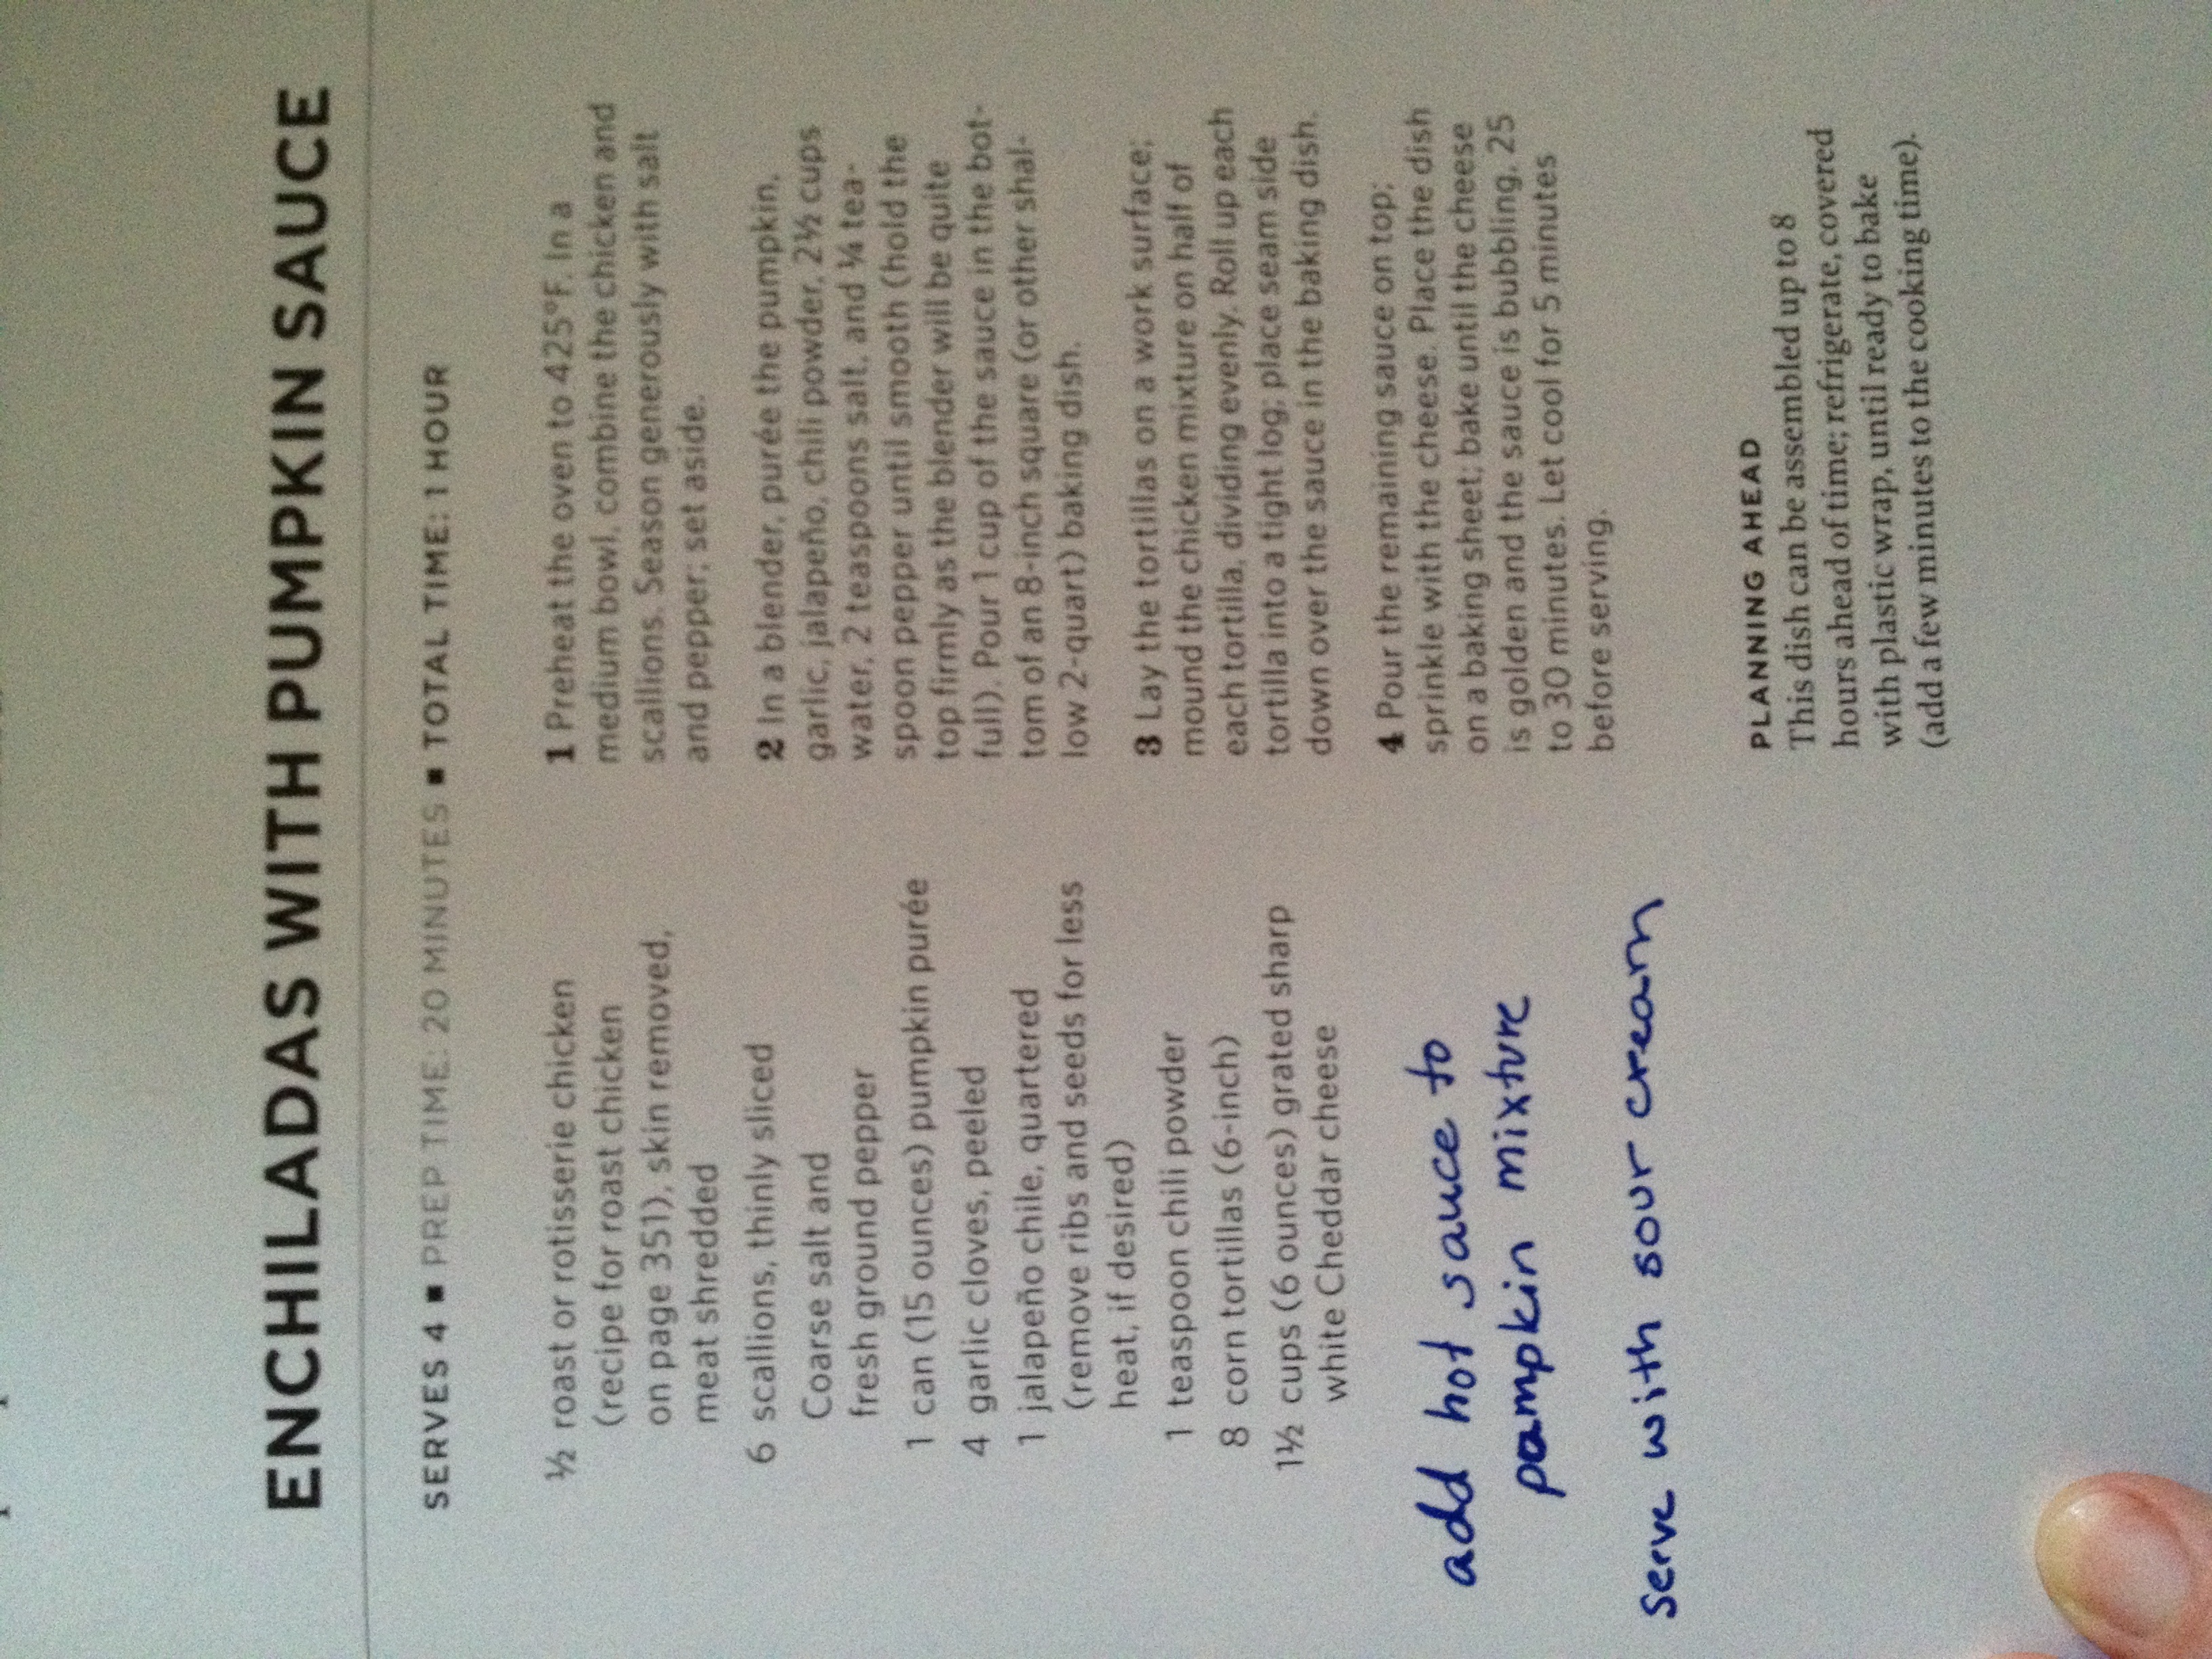 ENCHILADAS WITH PUMPKIN SAUCE
SERVES 4 ■ PREP TIME: 20 MINUTES ■ TOTAL TIME: 1 HOUR
½ roast or rotisserie chicken
(recipe for roast chicken
on page 351), skin removed,
meat shredded
6 scallions, thinly sliced
Coarse salt and
fresh ground pepper
1 can (15 ounces) pumpkin purée
4 garlic cloves, peeled
1 jalapeño chile, quartered
(remove ribs and seeds for less
heat, if desired)
1 teaspoon chili powder
8 corn tortillas (6-inch)
1½ cups (6 ounces) grated sharp
white Cheddar cheese
add hot sauce to
pumpkin mixture
serve with sour cream
1 Preheat the oven to 425°F. In a
medium bowl, combine the chicken and
scallions. Season generously with salt
and pepper; set aside.
2 In a blender, purée the pumpkin,
garlic, jalapeño, chili powder, 2½ cups
water, 2 teaspoons salt, and ¼ tea-
spoon pepper until smooth (hold the
top firmly as the blender will be quite
full). Pour 1 cup of the sauce in the bot-
tom of an 8-inch square (or other shal-
low 2-quart) baking dish.
3 Lay the tortillas on a work surface;
mound the chicken mixture on half of
each tortilla, dividing evenly. Roll up each
tortilla into a tight log; place seam side
down over the sauce in the baking dish.
4 Pour the remaining sauce on top;
sprinkle with the cheese. Place the dish
on a baking sheet; bake until the cheese
is golden and the sauce is bubbling, 25
to 30 minutes. Let cool for 5 minutes
before serving.
PLANNING AHEAD
This dish can be assembled up to 8
hours ahead of time; refrigerate, covered
with plastic wrap, until ready to bake
(add a few minutes to the cooking time).